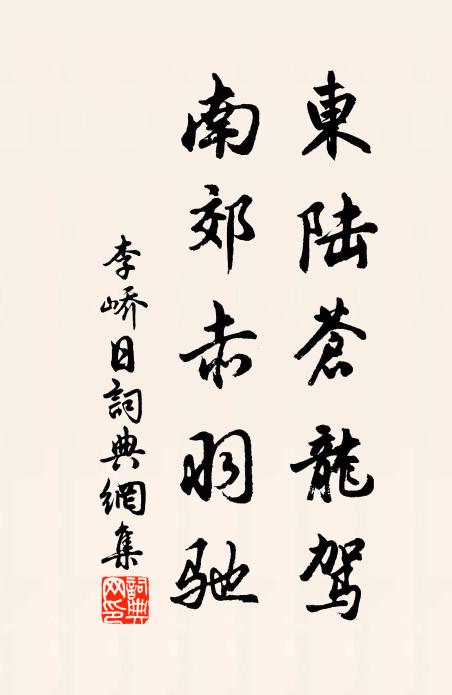 東陆蒼龍駕
南郊赤羽馳
李峤日詞典網集
詞典
网印